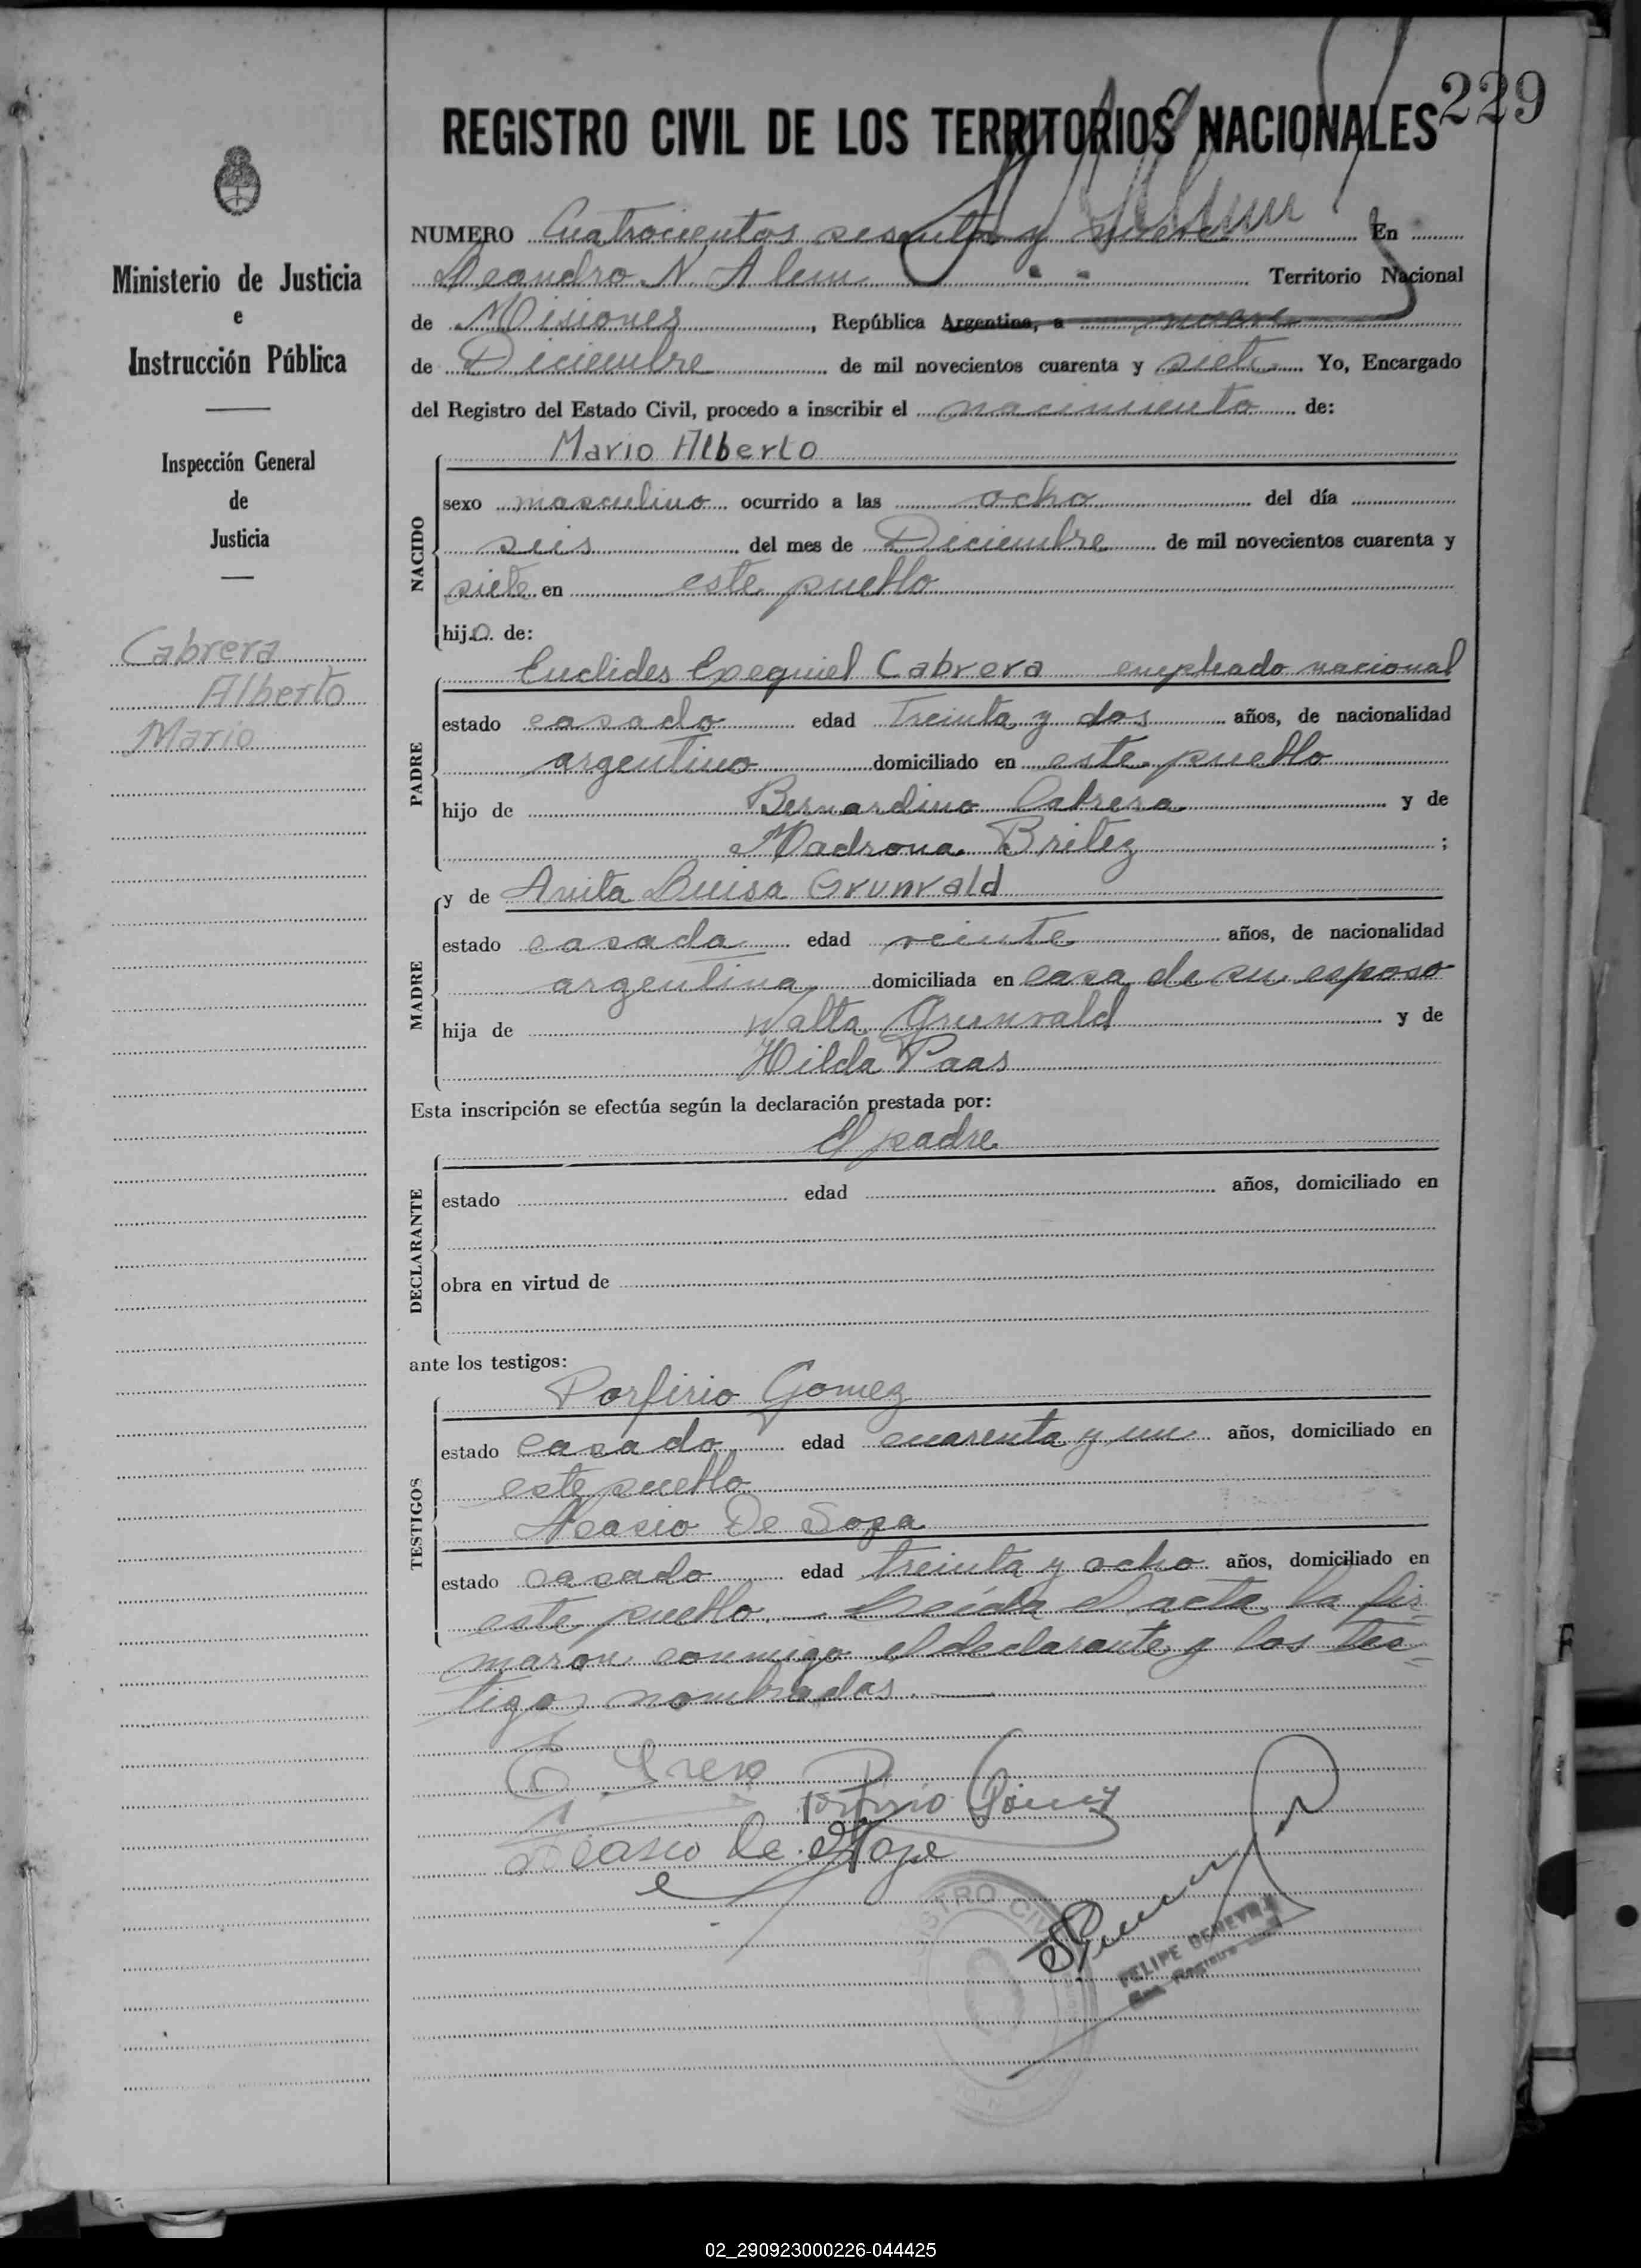 229
REGISTRO CIVIL DE LOS TERRITORIOS NACIONALES
NUMERO Cuatrocientos sesenta y nueve En
Leandro N. Alem Territorio Nacional
de Misiones, República Argentina, a nueve
de Diciembre de mil novecientos cuarenta y siete Yo, Encargado
del Registro del Estado Civil, procedo a inscribir el nacimiento de:
Ministerio de Justicia
e
Instrucción Pública
Inspección General
de
Justicia
Cabrera
Alberto
Mario
NACIDO
Mario Alberto
sexo masculino ocurrido a las ocho del día
seis del mes de Diciembre de mil novecientos cuarenta y
siete en este pueblo
hijo de:
PADRE
Euclides Exequiel Cabrera empleado nacional
estado casado edad Treinta y dos años, de nacionalidad
argentino domiciliado en este pueblo
hijo de Bernardino Cabrera y de
Madrona Britez ;
MADRE
y de Anita Luisa Grunvald
estado casada edad veinte años, de nacionalidad
argentina domiciliada en casa de su esposo
hija de Walta Grunvald y de
Hilda Paas
Esta inscripción se efectúa según la declaración prestada por:
El padre
DECLARANTE
estado edad años, domiciliado en
obra en virtud de
ante los testigos:
TESTIGOS
Porfirio Gomez
estado casado edad cuarenta y un años, domiciliado en
este pueblo
Acasio De Soza
estado casado edad treinta y ocho años, domiciliado en
este pueblo. — Leída el acta la fir=
maron conmigo el declarante y los tes=
tigos nombrados. —
Porfirio Gomez
REGISTRO CIVIL
FELIPE GENEYRA
Enc. Registro
02_290923000226-044425